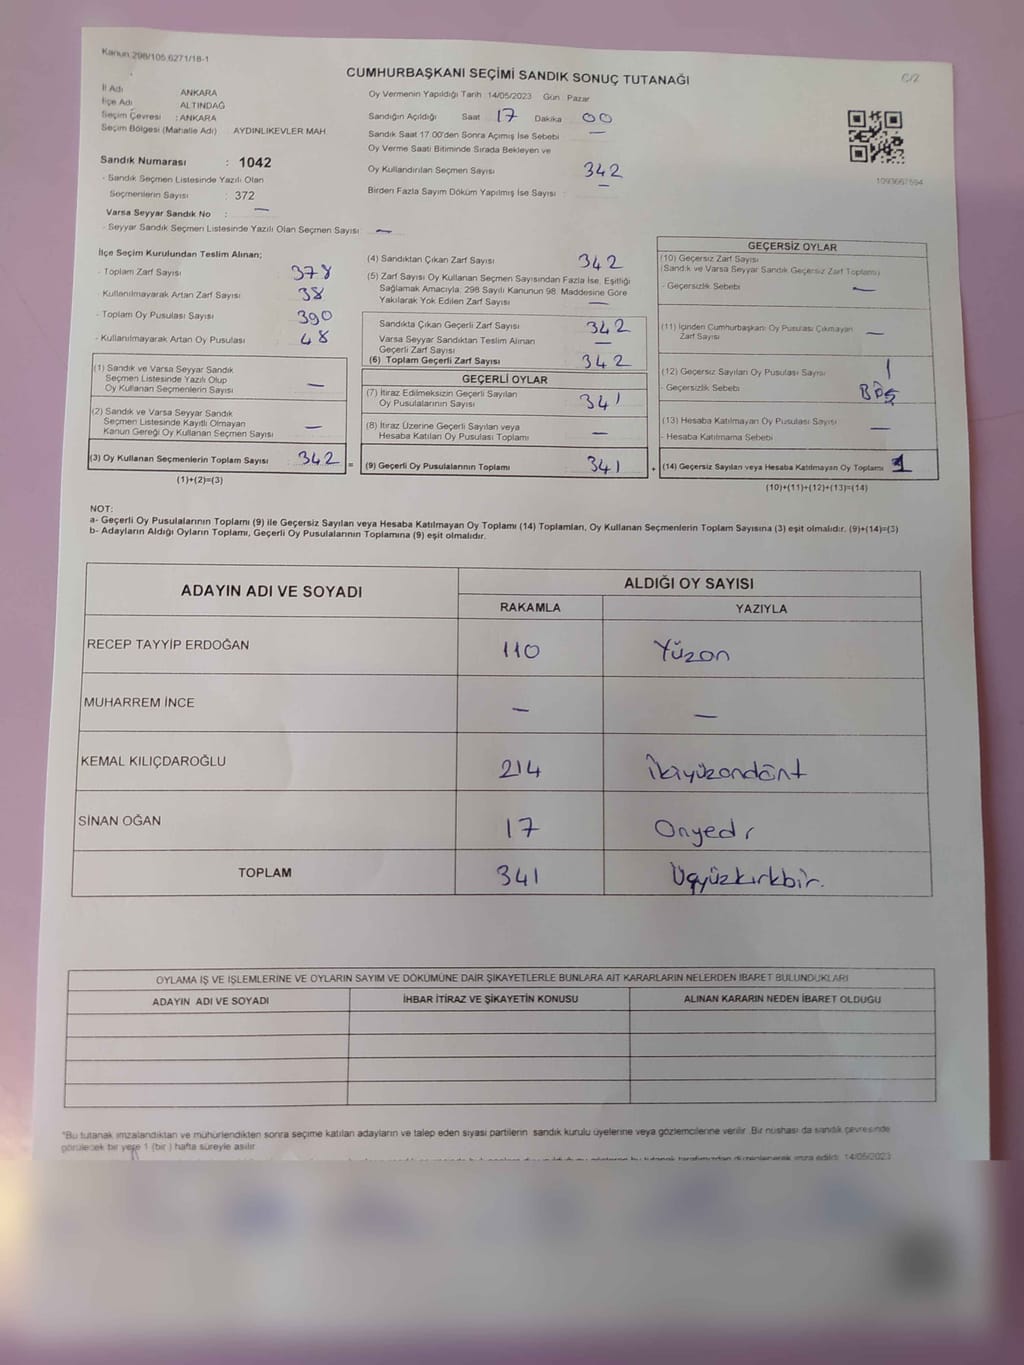 Kanun:298/105,6271/18-1
C/2
CUMHURBAŞKANI SEÇİMİ SANDIK SONUÇ TUTANAĞI
İl Adı ANKARA
İlçe Adı ALTINDAĞ
Seçim Çevresi : ANKARA
Seçim Bölgesi (Mahalle Adı) AYDINLIKEVLER MAH
Oy Vermenin Yapıldığı Tarih :14/05/2023 Gün : Pazar
Sandığın Açıldığı Saat 17 Dakika 00
Sandık Saat 17.00'den Sonra Açımış İse Sebebi —
Oy Verme Saati Bitiminde Sırada Bekleyen ve
Oy Kullandırılan Seçmen Sayısı 342
Birden Fazla Sayım Döküm Yapılmış İse Sayısı : —
1093667594
Sandık Numarası : 1042
- Sandık Seçmen Listesinde Yazılı Olan
Seçmenlerin Sayısı : 372
Varsa Seyyar Sandık No : —
- Seyyar Sandık Seçmen Listesinde Yazılı Olan Seçmen Sayısı : —
İlçe Seçim Kurulundan Teslim Alınan;
- Toplam Zarf Sayısı 378
- Kullanılmayarak Artan Zarf Sayısı 38
- Toplam Oy Pusulası Sayısı 390
- Kullanılmayarak Artan Oy Pusulası 48
(1) Sandık ve Varsa Seyyar Sandık
Seçmen Listesinde Yazılı Olup
Oy Kullanan Seçmenlerin Sayısı —
(2) Sandık ve Varsa Seyyar Sandık
Seçmen Listesinde Kayıtlı Olmayan
Kanun Gereği Oy Kullanan Seçmen Sayısı —
(3) Oy Kullanan Seçmenlerin Toplam Sayısı 342 =
(1)+(2)=(3)
(4) Sandıktan Çıkan Zarf Sayısı 342
(5) Zarf Sayısı Oy Kullanan Seçmen Sayısından Fazla İse, Eşitliği
Sağlamak Amacıyla; 298 Sayılı Kanunun 98. Maddesine Göre
Yakılarak Yok Edilen Zarf Sayısı —
Sandıkta Çıkan Geçerli Zarf Sayısı 342
Varsa Seyyar Sandıktan Teslim Alınan
Geçerli Zarf Sayısı —
(6) Toplam Geçerli Zarf Sayısı 342
GEÇERLİ OYLAR
(7) İtiraz Edilmeksizin Geçerli Sayılan
Oy Pusulalarının Sayısı 341
(8) İtiraz Üzerine Geçerli Sayılan veya
Hesaba Katılan Oy Pusulası Toplamı —
(9) Geçerli Oy Pusulalarının Toplamı 341 +
GEÇERSİZ OYLAR
(10) Geçersiz Zarf Sayısı
(Sandık ve Varsa Seyyar Sandık Geçersiz Zarf Toplamı)
- Geçersizlik Sebebi —
(11) İçinden Cumhurbaşkanı Oy Pusulası Çıkmayan
Zarf Sayısı —
(12) Geçersiz Sayılan Oy Pusulası Sayısı 1
- Geçersizlik Sebebi BOŞ
(13) Hesaba Katılmayan Oy Pusulası Sayısı —
- Hesaba Katılmama Sebebi
(14) Geçersiz Sayılan veya Hesaba Katılmayan Oy Toplamı 1
(10)+(11)+(12)+(13)=(14)
NOT:
a- Geçerli Oy Pusulalarının Toplamı (9) ile Geçersiz Sayılan veya Hesaba Katılmayan Oy Toplamı (14) Toplamları, Oy Kullanan Seçmenlerin Toplam Sayısına (3) eşit olmalıdır. (9)+(14)=(3)
b- Adayların Aldığı Oyların Toplamı, Geçerli Oy Pusulalarının Toplamına (9) eşit olmalıdır.
ADAYIN ADI VE SOYADI ALDIĞI OY SAYISI
RAKAMLA YAZIYLA
RECEP TAYYİP ERDOĞAN 110 Yüzon
MUHARREM İNCE — —
KEMAL KILIÇDAROĞLU 214 İkiyüzondört
SİNAN OĞAN 17 Onyedi
TOPLAM 341 Üçyüzkırkbir.
OYLAMA İŞ VE İŞLEMLERİNE VE OYLARIN SAYIM VE DÖKÜMÜNE DAİR ŞİKAYETLERLE BUNLARA AİT KARARLARIN NELERDEN İBARET BULUNDUKLARI
ADAYIN ADI VE SOYADI İHBAR İTİRAZ VE ŞİKAYETİN KONUSU ALINAN KARARIN NEDEN İBARET OLDUĞU
*Bu tutanak imzalandıktan ve mühürlendikten sonra seçime katılan adayların ve talep eden siyasi partilerin sandık kurulu üyelerine veya gözlemcilerine verilir .Bir nüshası da sandık çevresinde
görülecek bir yere 1 (bir ) hafta süreyle asılır.
bu tutanak tarafımızdan düzenlenerek imza edildi. 14/05/2023